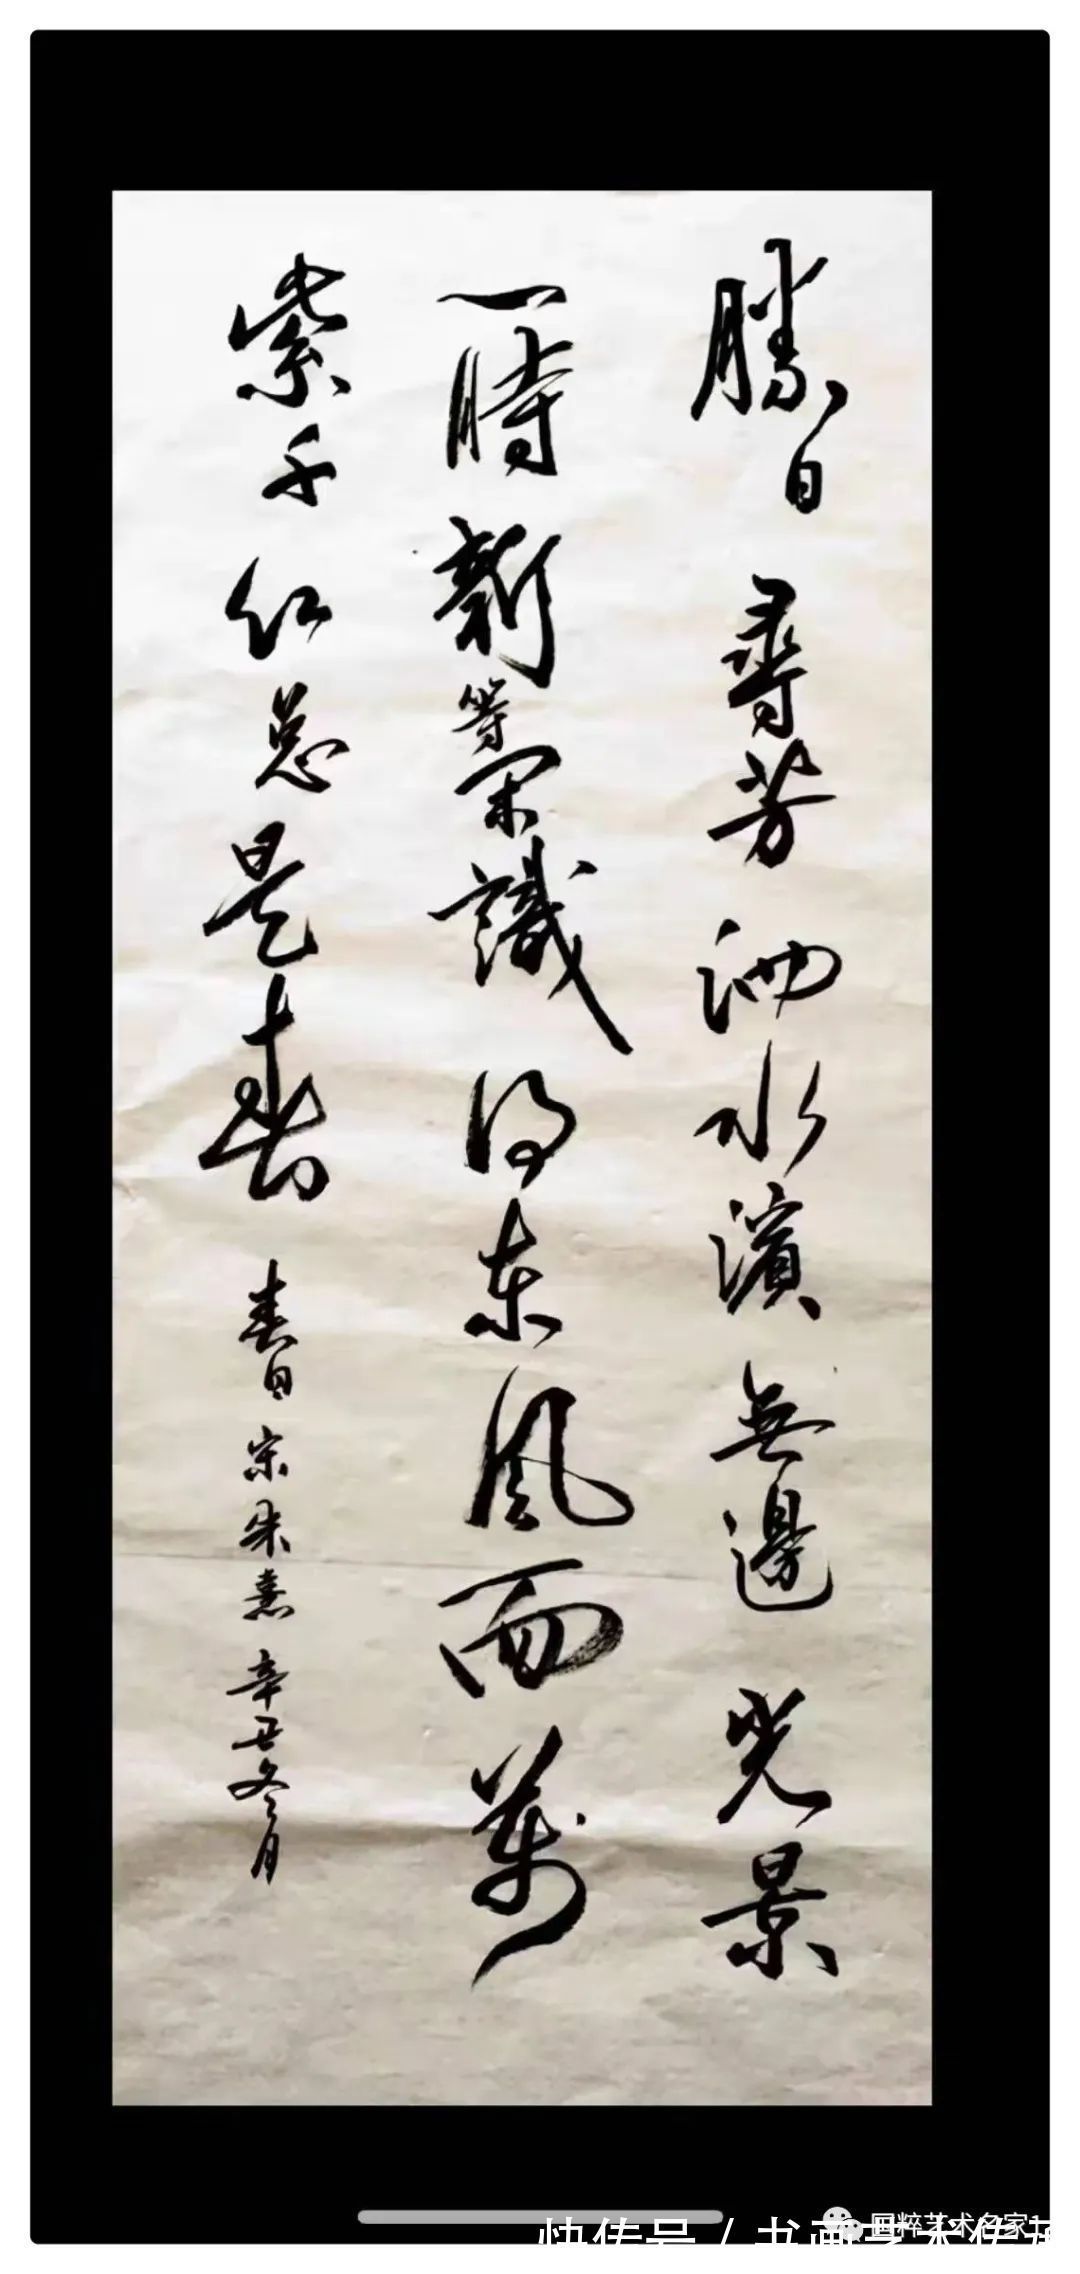 勝日尋芳泗水濱無邊光景
一時新等閑識得东風面萬
紫千红总是春 春日 宋朱熹 辛丑冬月
国粹艺术名家
快传号 / 书画艺术传